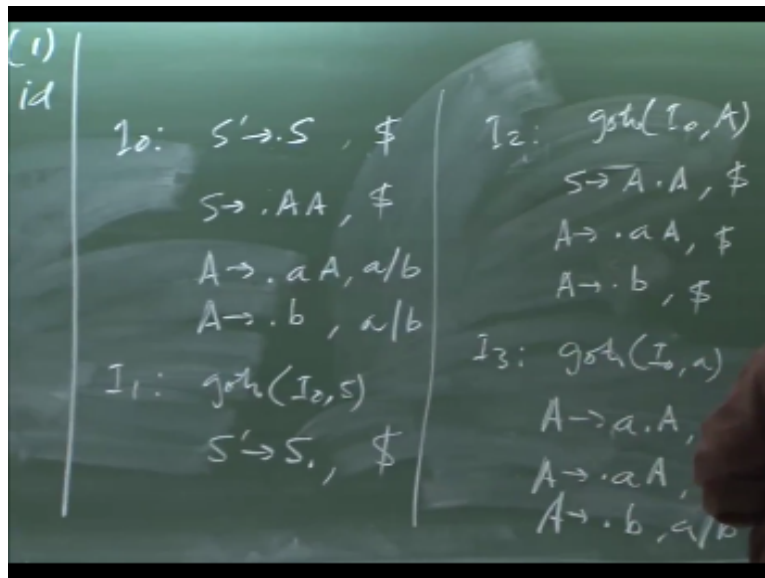 (1)
id
I0: S'→.S , $
S→ .AA , $
A→ .aA, a/b
A→ .b , a/b
I1: goto(I0,S)
S'→S. , $
I2: goto(I0,A)
S→ A.A , $
A→ .aA, $
A→ .b , $
I3: goto(I0,a)
A→a.A,
A→ .aA,
A→ .b , a/b